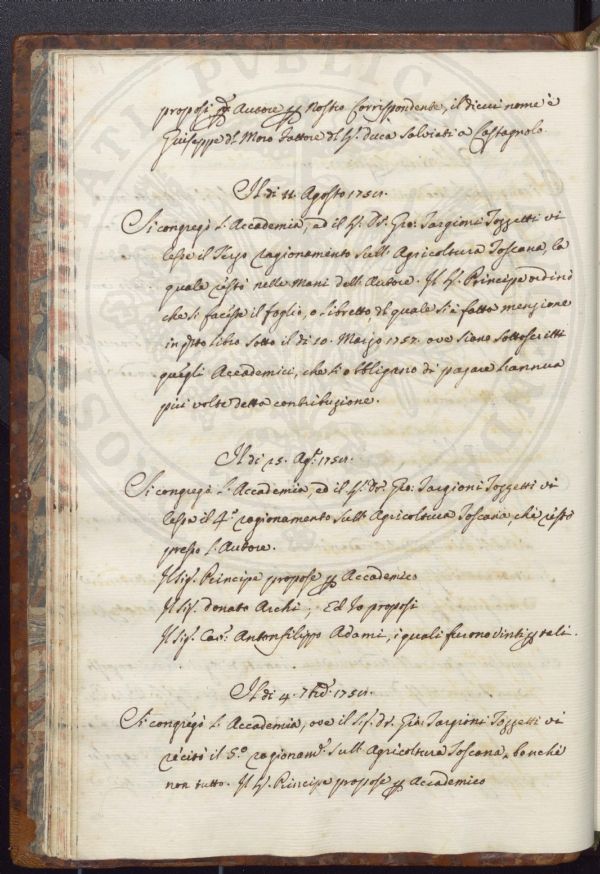 proposi p Autore p nostro Corrispondente, il di cui nome è
Giuseppe del Moro fattore del S. duca Salviati a Castagnolo.
Il di 11. Agosto
Si congregò l'Accademia, ed il S. Dr. Gio: Targioni Tozzetti vi
lesse il Terzo ragionamento sull'Agricoltura Toscana, la
quale restò nelle Mani dell'Autore. Il S. Principe ordinò
che si facesse il foglio, o libretto, del quale si è fatto menzione
in qsto libro sotto il di 10. Marzo ove siano sottoscritti
quegli Accademici, che si obbligano di pagare l'annua
più volte detta contribuzione.
Il di 25. Agto
Si congregò l'Accademia, ed il S. Dr. Gio: Targioni Tozzetti vi
lesse il 4.o ragionamento sull'Agricoltura Toscana, che restò
presso l'Autore.
Il Sig. Principe propose p Accademico
Il Sig. Donato Archi; Ed Io proposi
Il Sig. Cav: Antonfilippo Adami, i quali furono vinti p tali.
Il di 4. 7bre
Si congregò l'Accademia, ove il Sig. Dr. Gio: Targioni Tozzetti vi
recitò il 5.o ragionamto sull'Agricoltura Toscana, benchè
non tutto. Il S. Principe propose p Accademico